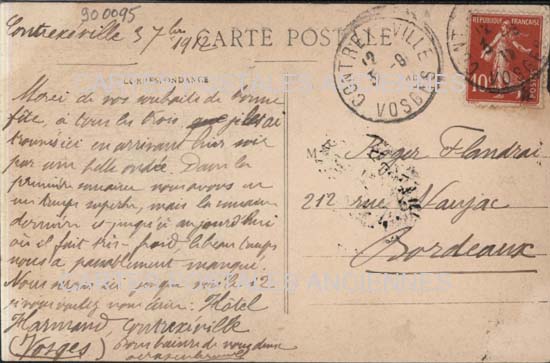 900095
Contrexéville 3 7bre 1912
CARTE POSTALE
CORRESPONDANCE
Merci de vos souhaits de bonne
fête, à tous les trois, que j'ai
trouvés ici en arrivant hier soir
par une belle ondée. Dans la
première semaine nous avons eu
un temps superbe, mais la semaine
dernière et jusqu'à aujourd'hui
où il fait très froid, le beau temps
nous a passablement manqué.
Nous sommes ici jusqu'au 12
si vous voulez nous écrire: Hôtel
Harmand, Contrexéville
(Vosges) Bons baisers de nous deux
M Roger Flandrai
212 rue Naujac
Bordeaux
CONTREXEVILLE
VOSGES
REPUBLIQUE FRANÇAISE
10
POSTES
CARTES POSTALES ANCIENNES
CARTES POSTALES ANCIENNES